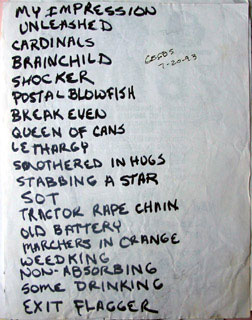 MY IMPRESSION
UNLEASHED
CARDINALS
BRAINCHILD
SHOCKER
POSTAL BLOWFISH
BREAK EVEN
QUEEN OF CANS
LETHARGY
SMOTHERED IN HUGS
STABBING A STAR
SOT
TRACTOR RAPE CHAIN
OLD BATTERY
MARCHERS IN ORANGE
WEEDKING
NON-ABSORBING
SOME DRINKING
EXIT FLAGGER
CBGBS
7-20-93